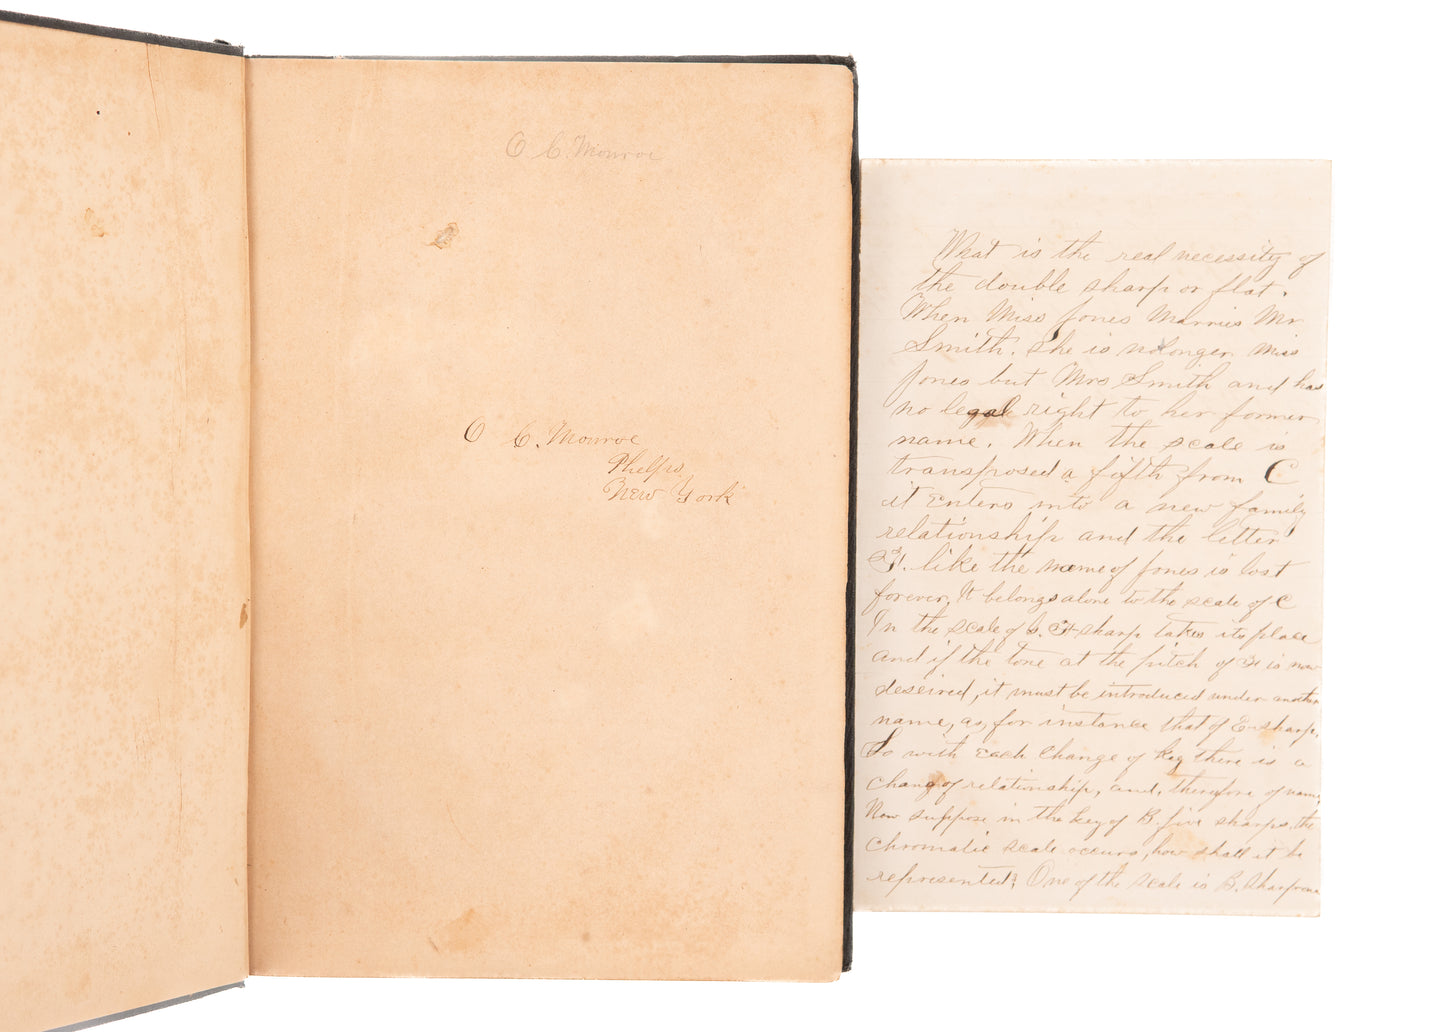 O C. Monroe
O C. Monroe
Phelps
New York
What is the real necessity of
the double sharp or flat.
When Miss Jones Marries Mr
Smith. She is no longer Miss
Jones but Mrs Smith and has
no legal right to her former
name. When the scale is
transposed a fifth from C
it Enters into a new family
relationship and the letter
F. like the name of Jones is lost
forever. It belongs alone to the scale of C
In the scale of G. F sharp takes its place
and if the tone at the pitch of F is now
deseired, it must be introduced under another
name, as, for instance that of E-sharp.
So with each Change of key there is a
chang of relationship, and, therefore of name,
Now suppose in the key of B. five sharps, the
Chromatic scale occurs, how shall it be
represented? One of the scale is B. Sharp one